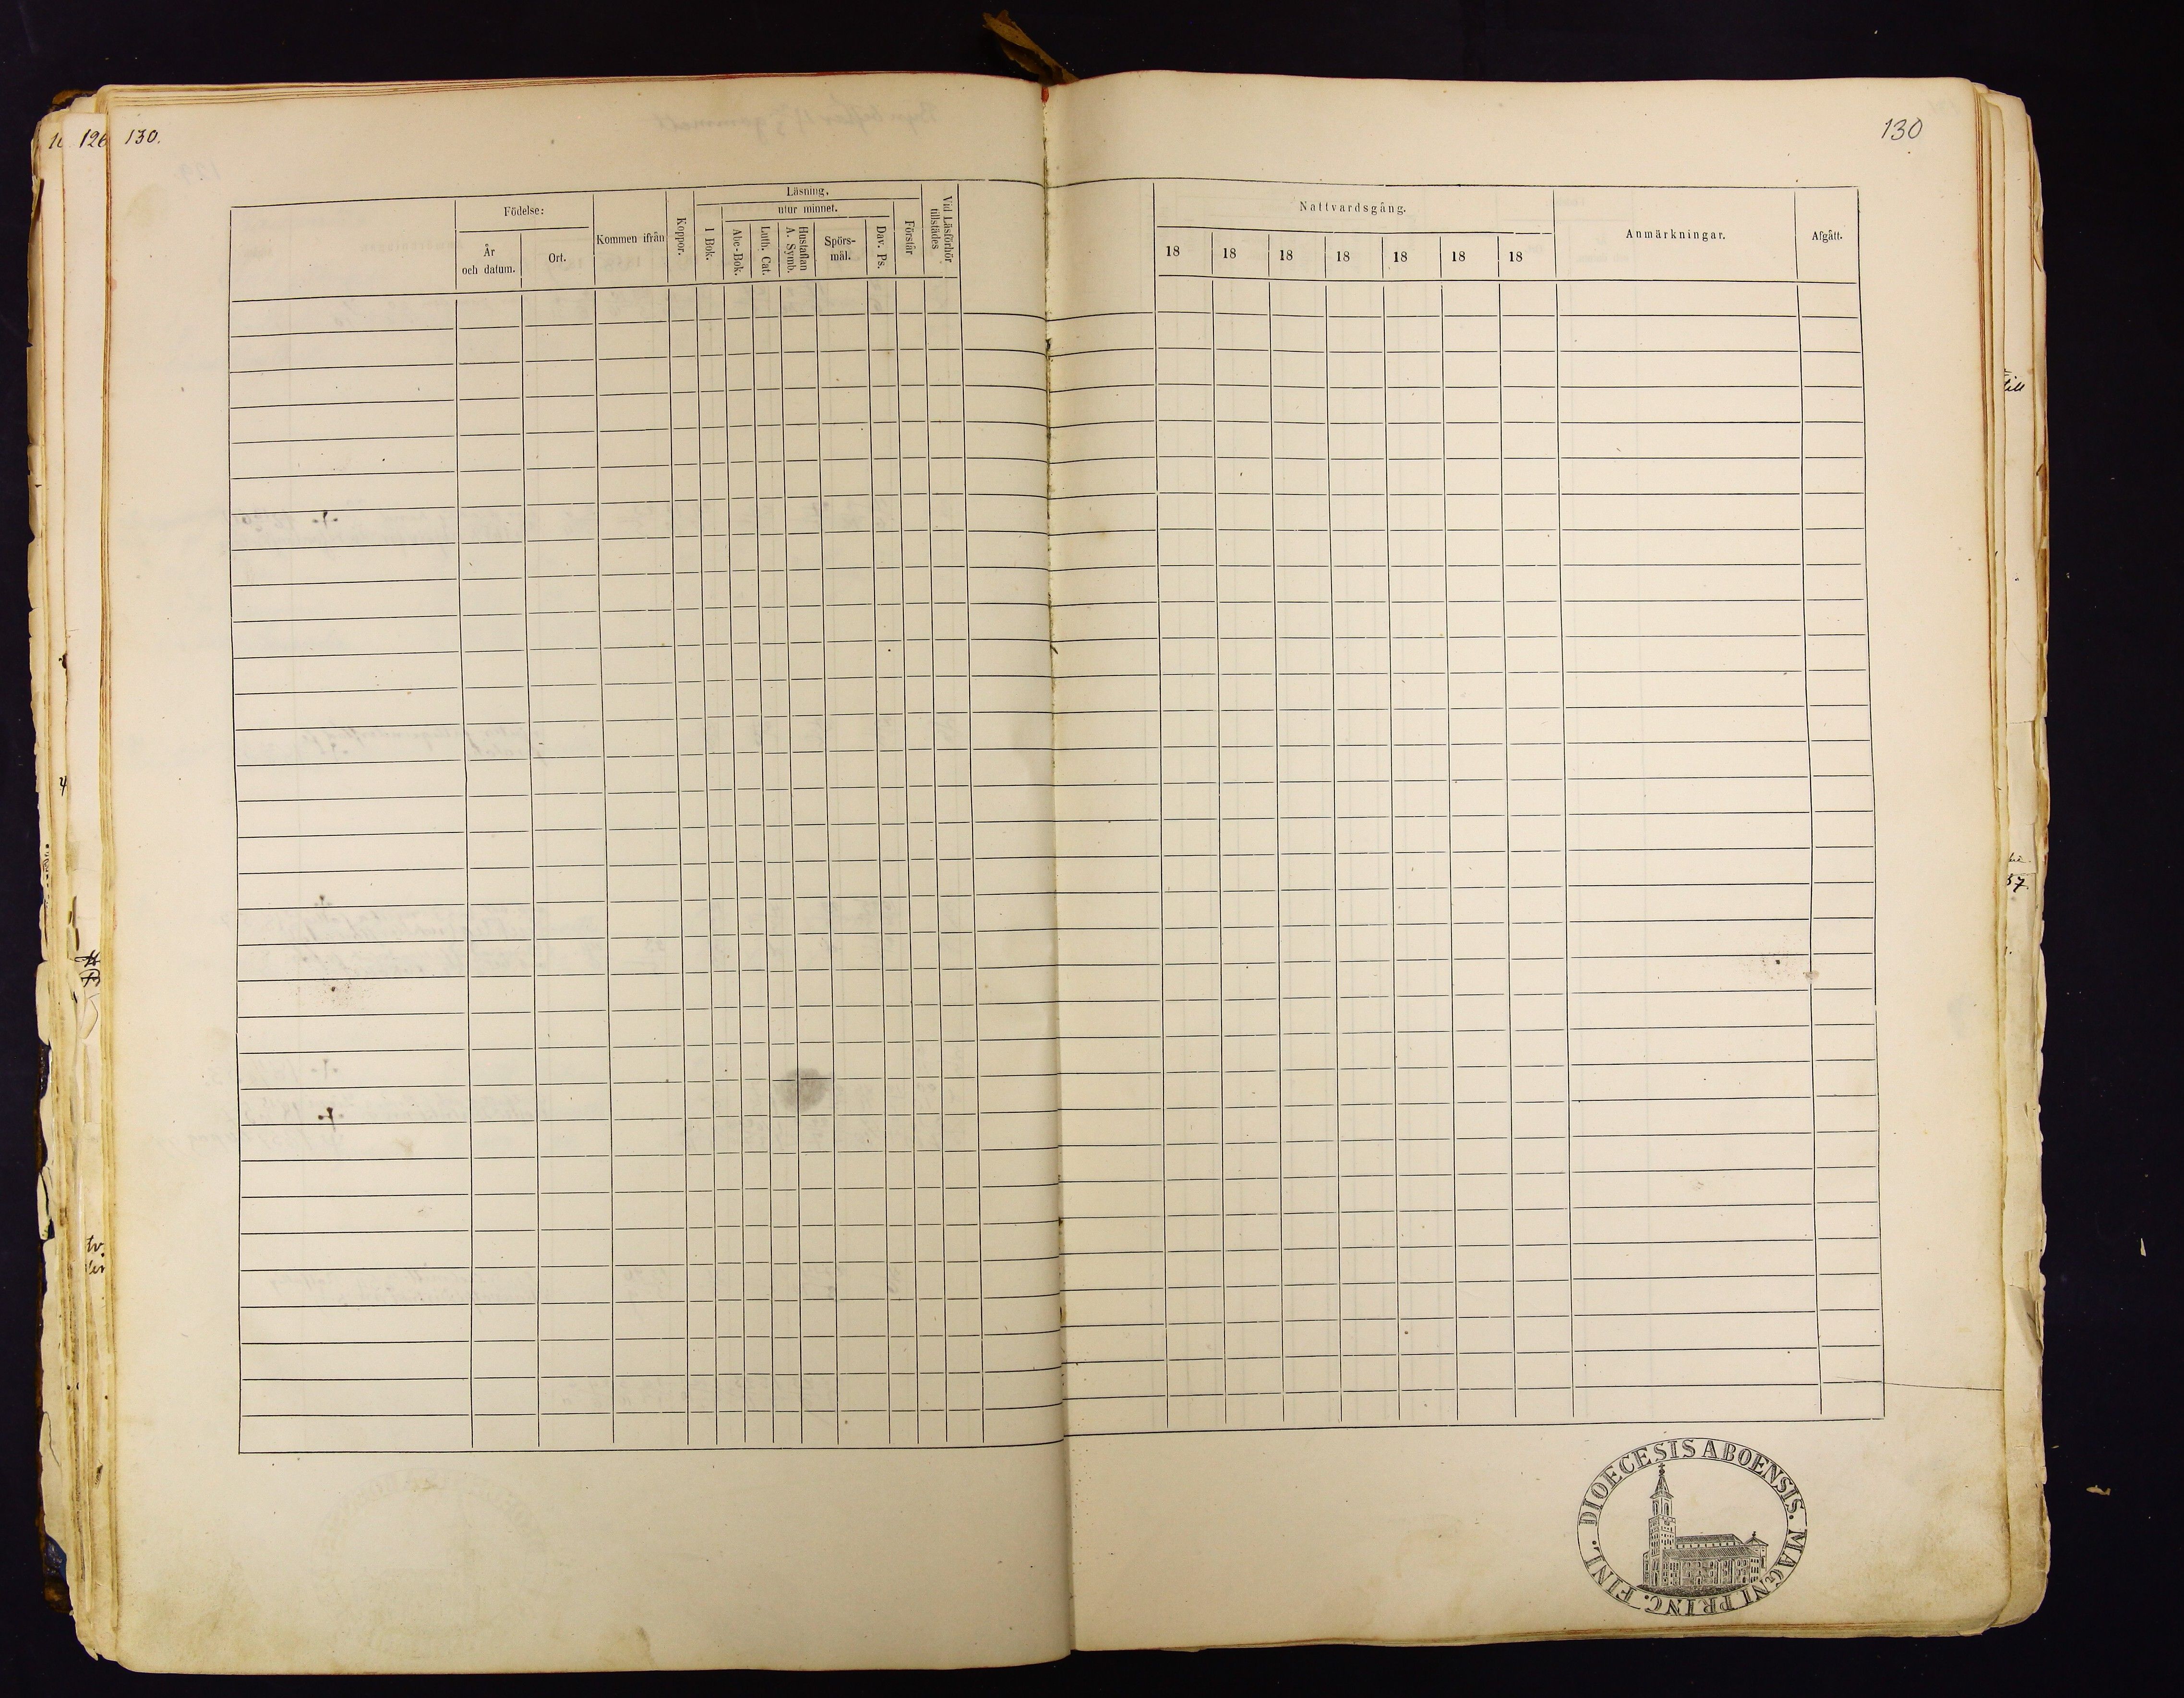 126 130.
130
Födelse:
År
och datum.
Ort.
Kommen ifrån
Koppor.
Läsning,
utur minnet.
I Bok.
Abc-Bok.
Luth. Cat.
Hustaflan
A. Symb.
Spörs-
mål.
Dav. Ps.
Förstår
Vid Läsförhör
tillstädes
Nattvardsgång.
18 18 18 18 18 18 18
Anmärkningar.
Afgått.
till
57
DIOECESIS ABOENSIS. MAGNI PRINC. FINL.